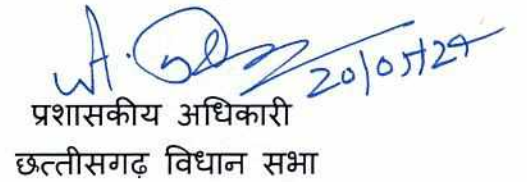 20/05/24
प्रशासकीय अधिकारी
छत्तीसगढ़ विधान सभा